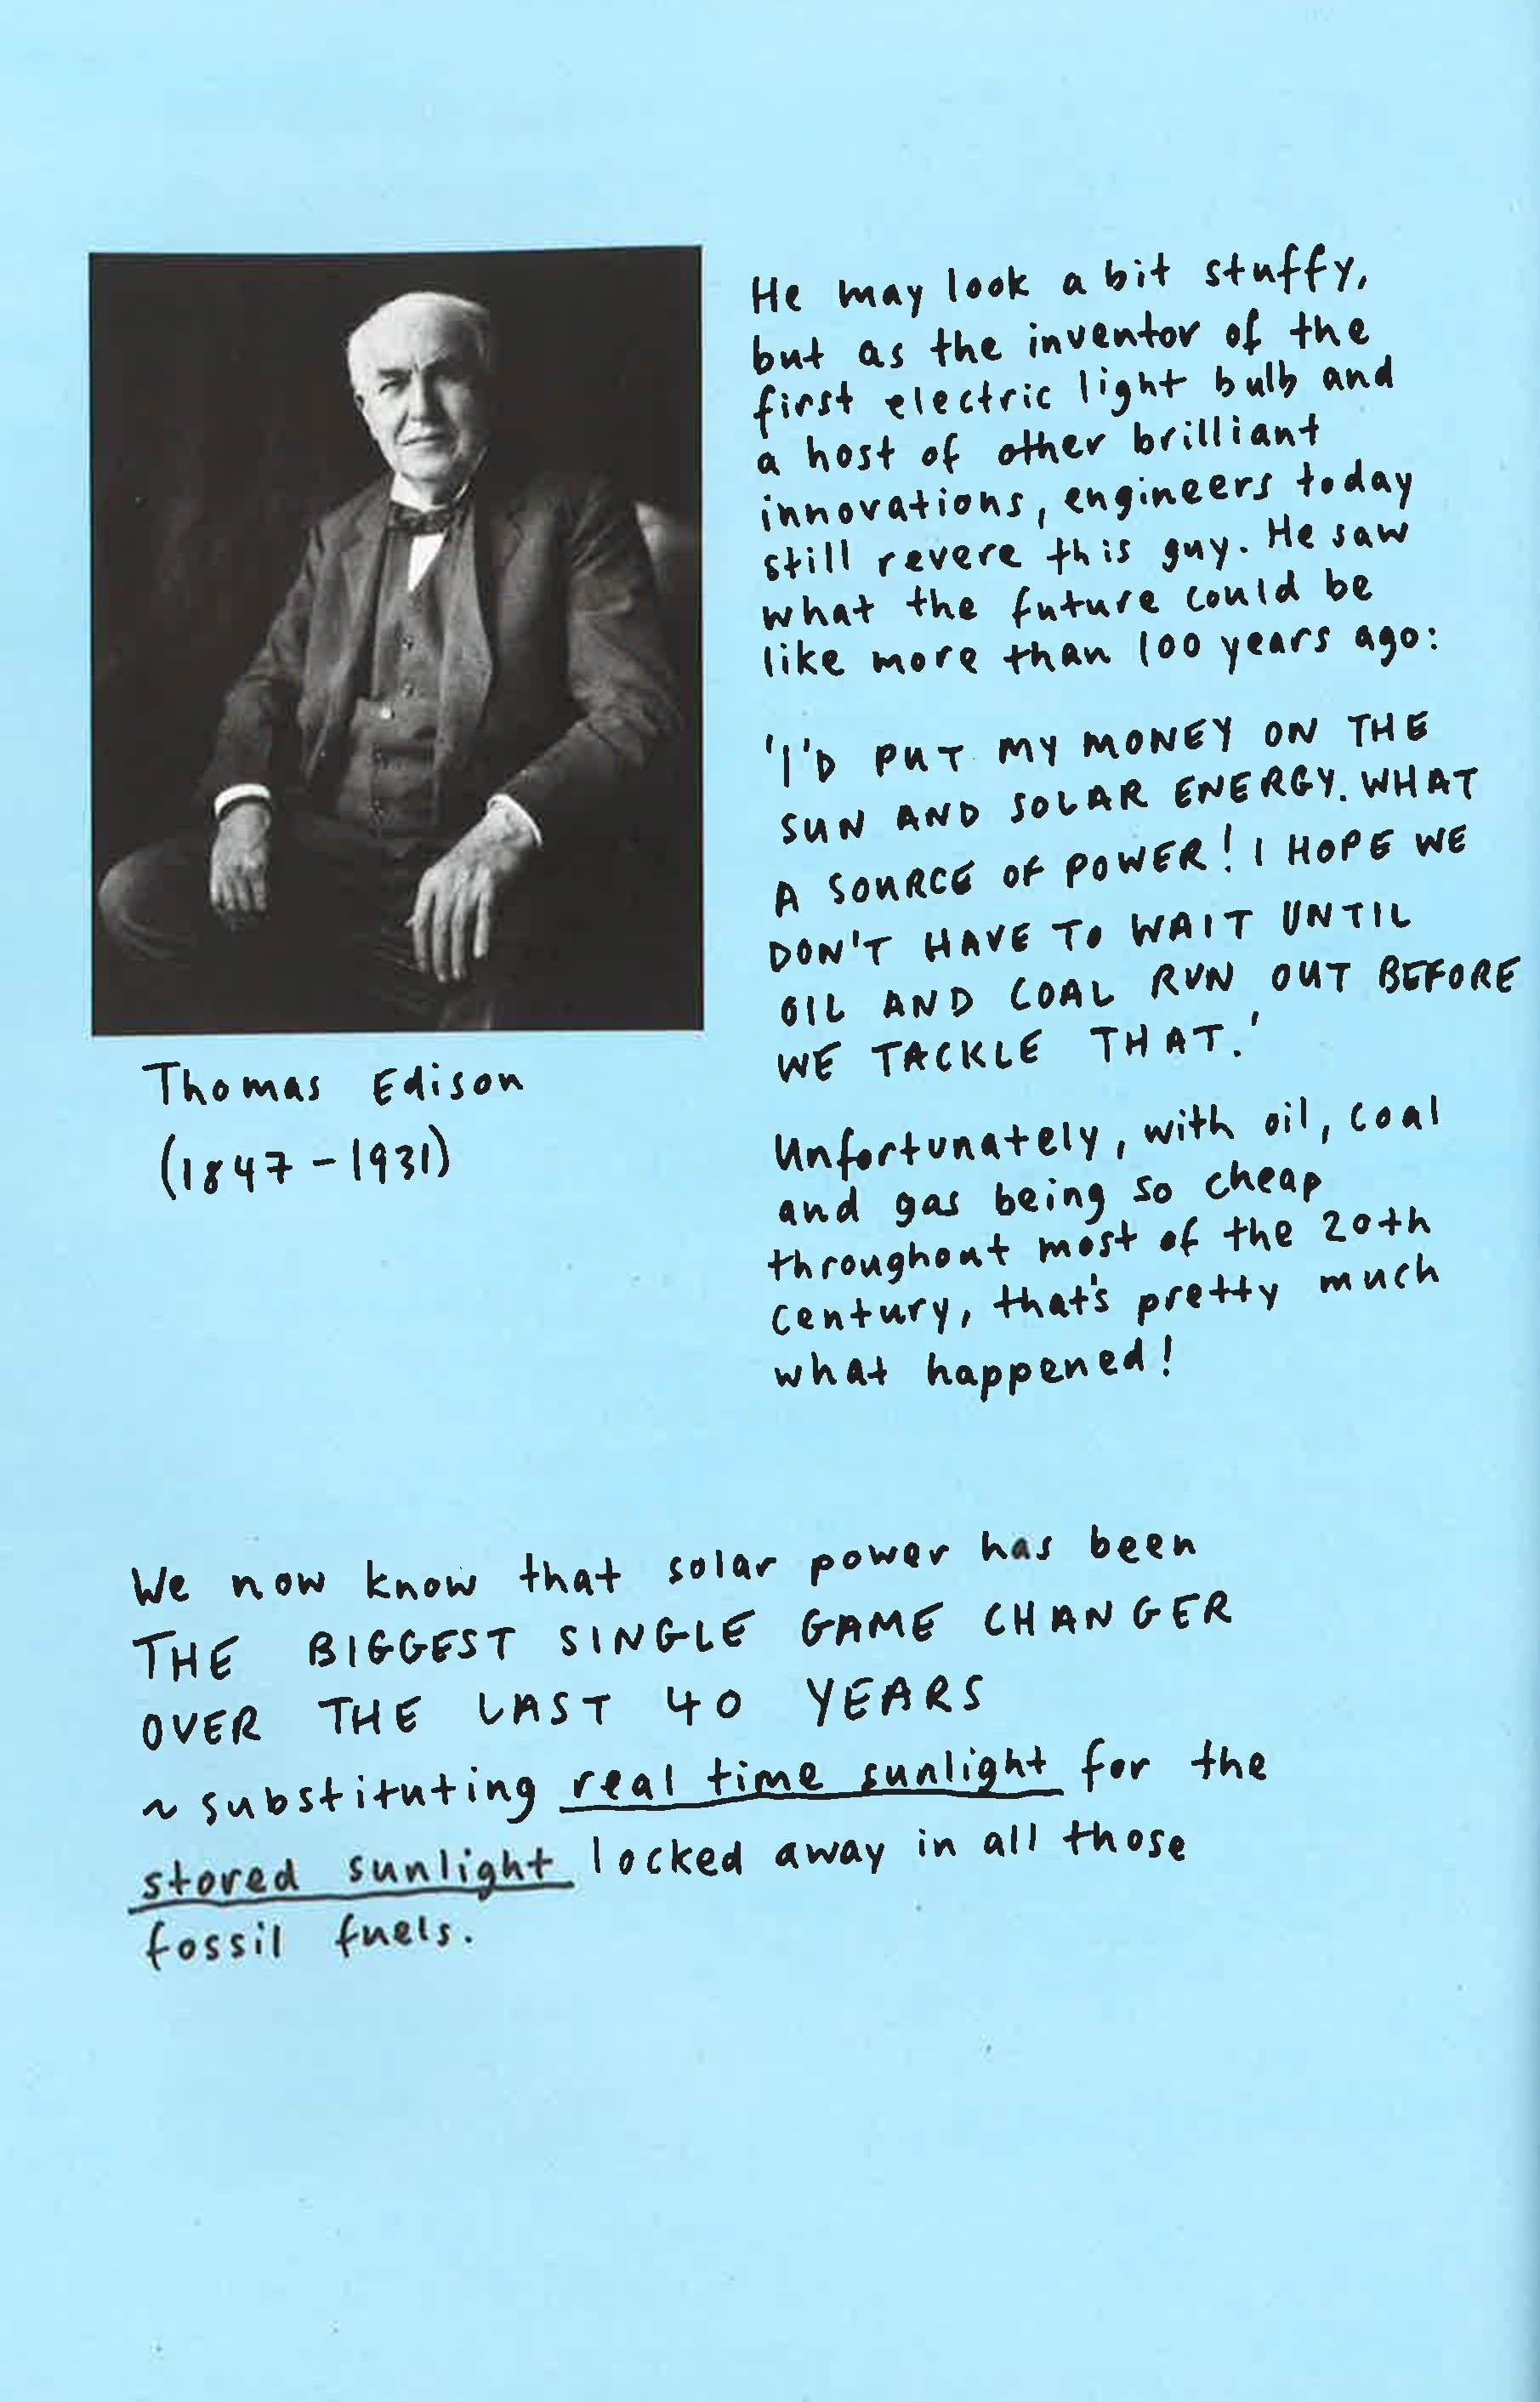 He may look a bit stuffy,
but as the inventor of the
first electric light bulb and
a host of other brilliant
innovations, engineers today
still revere this guy. He saw
what the future could be
like more than 100 years ago:
'I'D PUT MY MONEY ON THE
SUN AND SOLAR ENERGY. WHAT
A SOURCE OF POWER! I HOPE WE
DON'T HAVE TO WAIT UNTIL
OIL AND COAL RUN OUT BEFORE
WE TACKLE THAT.'
Thomas Edison
(1847-1931)
Unfortunately, with oil, coal
and gas being so cheap
throughout most of the 20th
century, that's pretty much
what happened!
We now know that solar power has been
THE BIGGEST SINGLE GAME CHANGER
OVER THE LAST 40 YEARS
~ substituting real time sunlight for the
stored sunlight locked away in all those
fossil fuels.